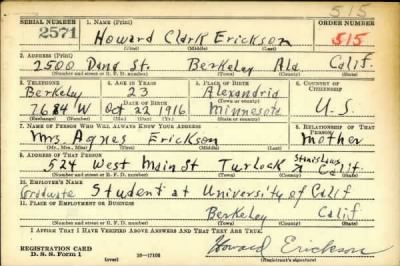 515
SERIAL NUMBER 1. NAME (Print) ORDER NUMBER
2571 Howard Clark Erickson 515
(First) (Middle) (Last)
2. ADDRESS (Print)
2500 Dana St. Berkeley Ala Calif.
(Number and street or R. F. D. number) (Town) (County) (State)
3. TELEPHONE 4. AGE IN YEARS 5. PLACE OF BIRTH 6. COUNTRY OF CITIZENSHIP
Berkeley 23 Alexandria
DATE OF BIRTH (Town or county)
7684 W Oct 22 1916 Minnesota U.S.
(Exchange) (Number) (Mo.) (Day) (Yr.) (State or country)
7. NAME OF PERSON WHO WILL ALWAYS KNOW YOUR ADDRESS 8. RELATIONSHIP OF THAT PERSON
Mrs Agnes Erickson Mother
(Mr., Mrs., Miss) (First) (Middle) (Last)
9. ADDRESS OF THAT PERSON
524 West Main St Turlock Stanislaus Calif.
(Number and street or R. F. D. number) (Town) (County) (State)
10. EMPLOYER'S NAME
Graduate Student at University of Calif
11. PLACE OF EMPLOYMENT OR BUSINESS
Berkeley Calif.
(Number and street or R. F. D. number) (Town) (County) (State)
I AFFIRM THAT I HAVE VERIFIED ABOVE ANSWERS AND THAT THEY ARE TRUE.
REGISTRATION CARD
D. S. S. Form 1 (over) 16—17105 Howard Erickson
(Registrant's signature)